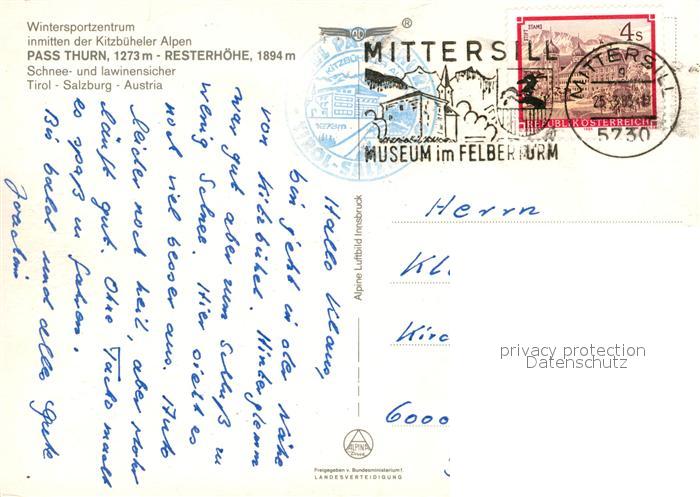 Wintersportzentrum
inmitten der Kitzbüheler Alpen
PASS THURN, 1273 m - RESTERHÖHE, 1894 m
Schnee- und lawinensicher
Tirol - Salzburg - Austria
®
MITTERSILL
MUSEUM im FELBERTURM
STIFT STAMS
4 S
REPUBLIK ÖSTERREICH
MITTERSILL
5730
KITZBÜHEL
TIROL-SALZ
Hallo Klaus,
bin jetzt in der Nähe
von Kitzbühel. Hinterglemm
war gut aber zum Schluß zu
wenig Schnee. Hier sieht es
noch viel besser aus. Auto
leider noch heil, aber Mohr
läuft gut. Ohne Tacho macht
es spaß zu fahren.
Bis bald und alles Gute
Joachim
Alpine Luftbild Innsbruck
Herrn
Kl
Kirc
6000
privacy protection
Datenschutz
ALPINA
Druck
Freigegeben v. Bundesministerium f.
LANDESVERTEIDIGUNG